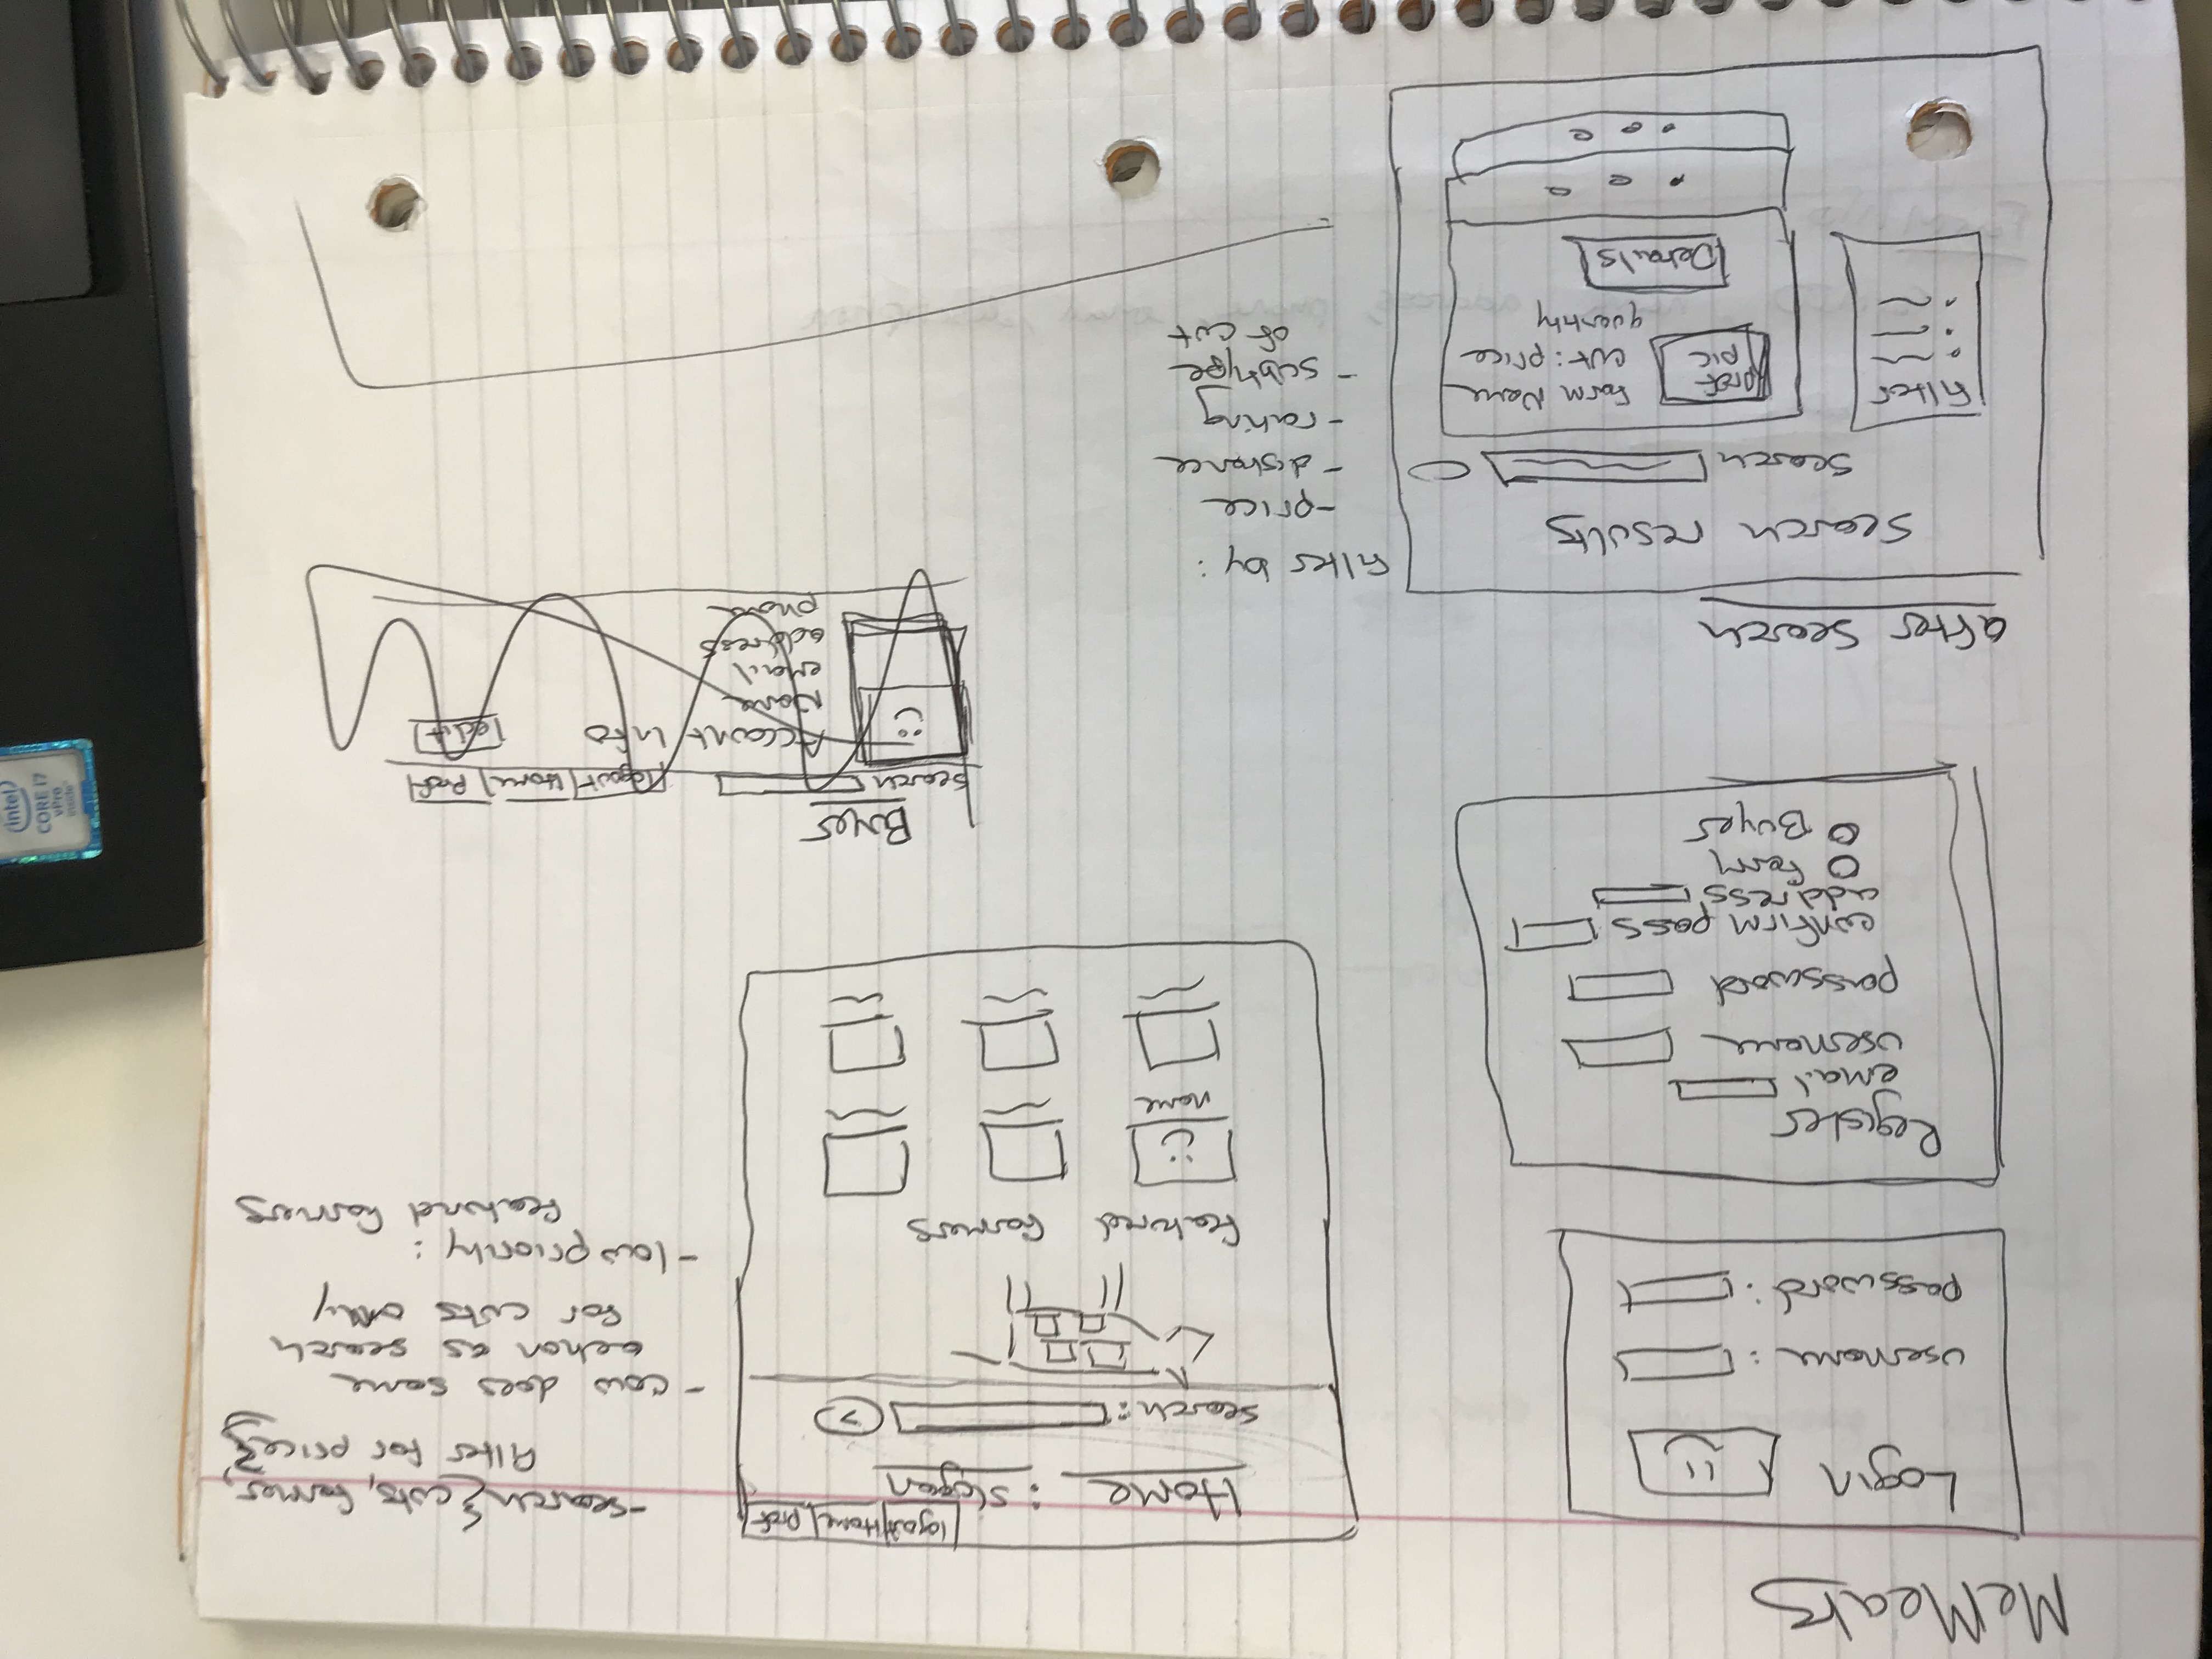 MeMeats
Login
username :
password :
Register
email
username
password
confirm pass
address
farm
Buyer
logout Home Prof
Home : slogan
search:
featured farmers
name
-search { cuts, farmer,
filter for price}
- cow does same
action as search
for cuts only
- low priority :
featured farmers
Buyer
search logout Home Prof
Account Info edit
Name
email
address
phone
after search
search results
search
filter
prof
pic
farm Name
cut : price
quantity
Details
filter by :
- price
- distance
- rating
- subtype
of cut
intel
CORE i7
vPro
inside